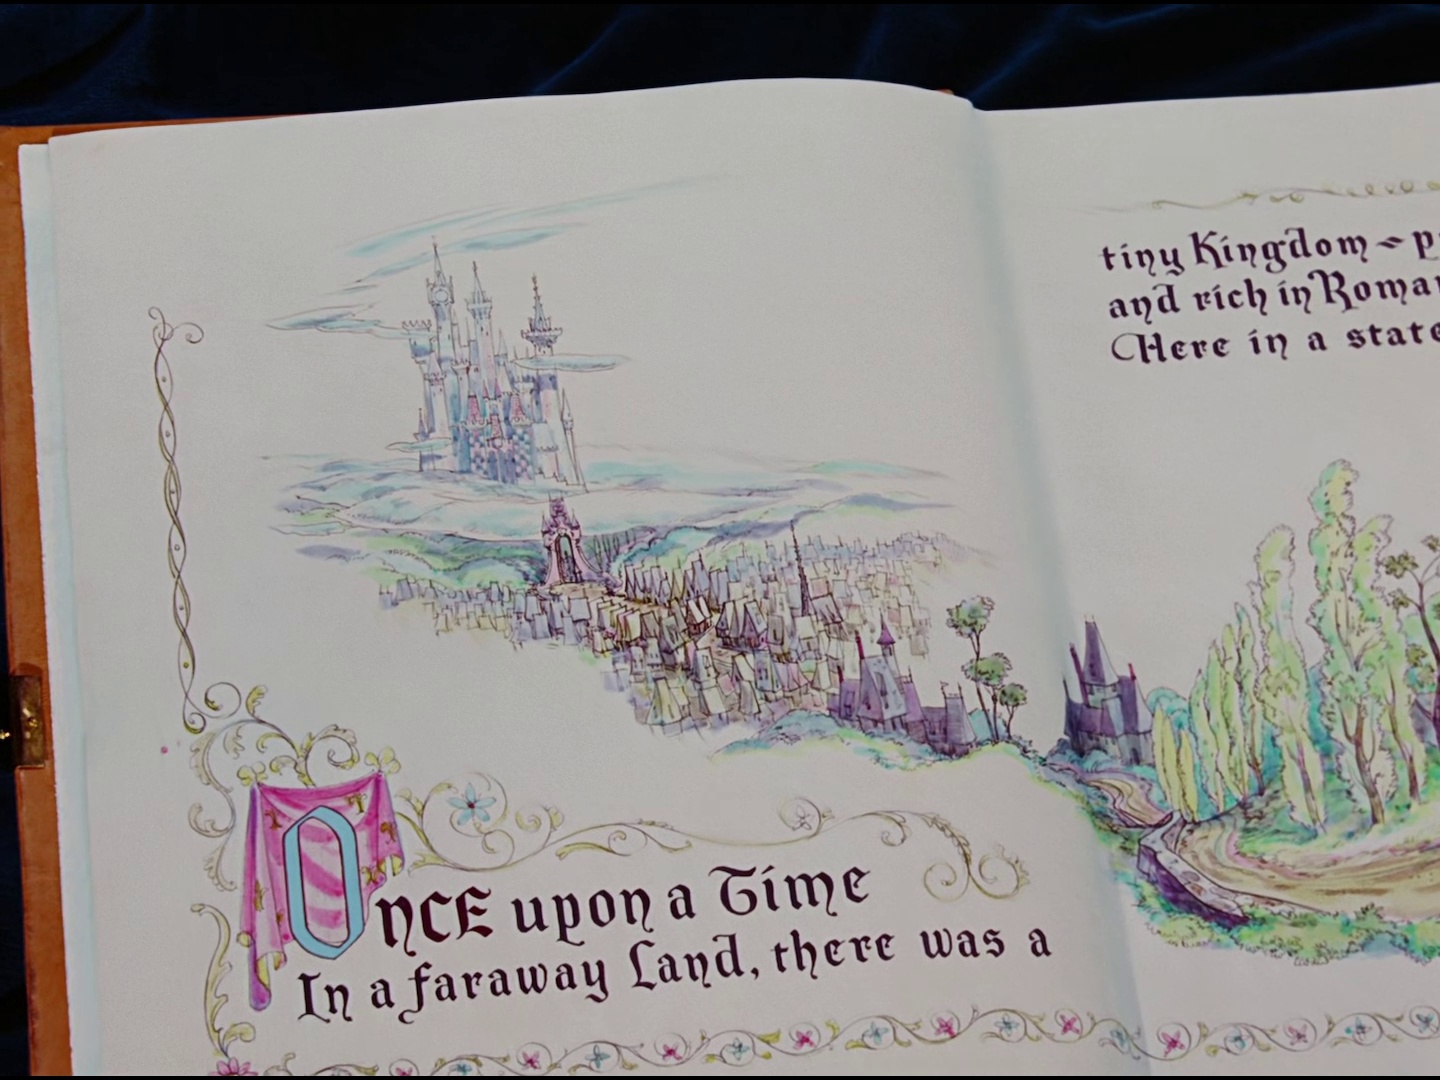 Once upon a Time
In a faraway Land, there was a
tiny Kingdom ~
and rich in
Here in a